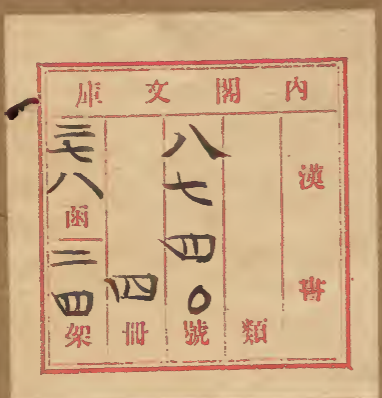 內閣文庫
漢書
類
八七四〇號
四冊
三七八函
二四架